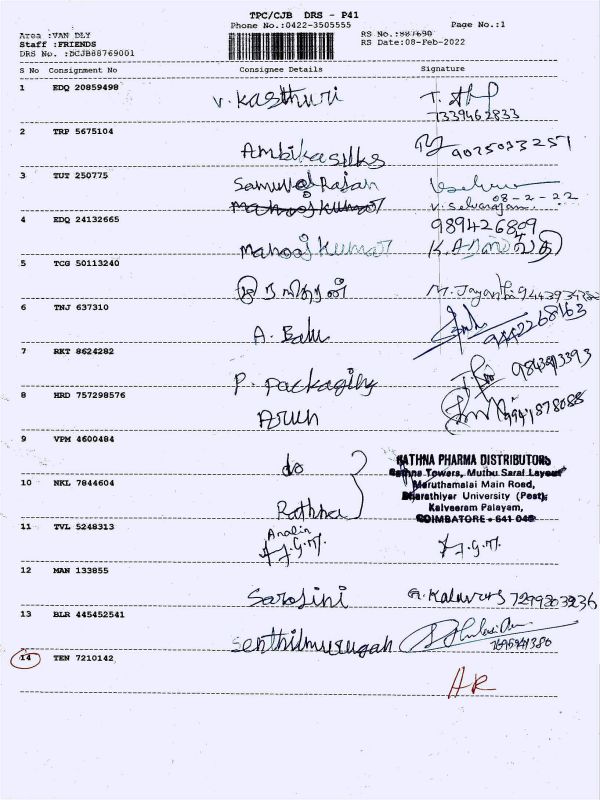 TPC/CJB DRS - P41
Phone No.:0422-3505555
Page No.:1
Area :VAN DLY
Staff :FRIENDS
DRS No. :DCJB88769001
RS No.:887690
RS Date:08-Feb-2022
S No Consignment No Consignee Details Signature
1 EDQ 20859498 V. Kasthuri
7339462833
2 TRP 5675104 Ambika silks 9025033251
3 TUT 250775 Samuvel Rajan
08-2-22
Manoj kumar V. Selvarajan
4 EDQ 24132665 Manoj kumar 989426809
5 TCG 50113240 M. Jayanthi
6 TNJ 637310 A. Balu 9442268163
7 RKT 8624282 P. packaging
8 HRD 757298576 Arun 9941878088
9 VPM 4600484 do
10 NKL 7844604 Rathna
RATHNA PHARMA DISTRIBUTORS
Rathna Towers, Muthu Sarai Layout
Maruthamalai Main Road,
Bharathiyar University (Post),
Kalveeram Palayam,
COIMBATORE - 641 046
11 TVL 5248313
12 MAN 133855 Sarojini
13 BLR 445452541 Senthilmurugan
14 TEN 7210142
AR